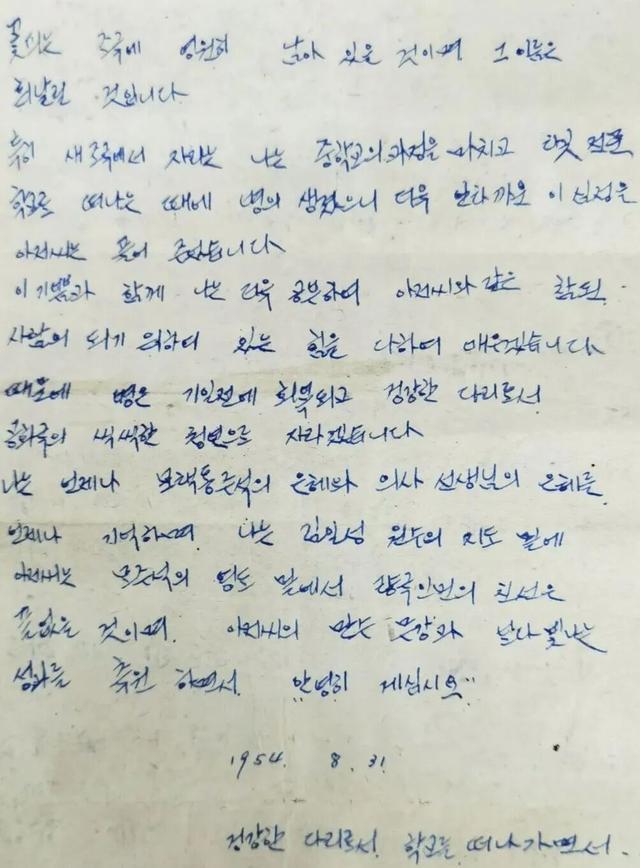 조국에 영원히 남아 있을 것이며 그 이름은
휘날릴 것입니다
특히 새 조국에서 자라는 나는 중학교의 과정을 마치고 전문
학교로 떠나는 때에 병의 생겼으니 더욱 안타까운 이 심정을
아저씨는 풀어 주었습니다
이 기쁨과 함께 나는 더욱 공부하여 아저씨와 같은 참된
사람의 되기 위하여 있는 힘을 다하여 배우겠습니다
때문에 병은 기일전에 회복되고 건강한 다리로서
공화국의 씩씩한 청년으로 자라겠습니다
나는 언제나 모택동주석의 은혜와 의사 선생님의 은혜를
언제나 기억하며 나는 김일성 원수의 지도 밑에
아저씨는 모주석의 영도 밑에서 량국인민의 친선은
끝없을 것이며. 아저씨의 만수무강과 날다 빛나는
성과를 축원 하면서. "안녕히 계십시오"
1954. 8. 31.
건강한 다리로서. 학교를 떠나가면서.